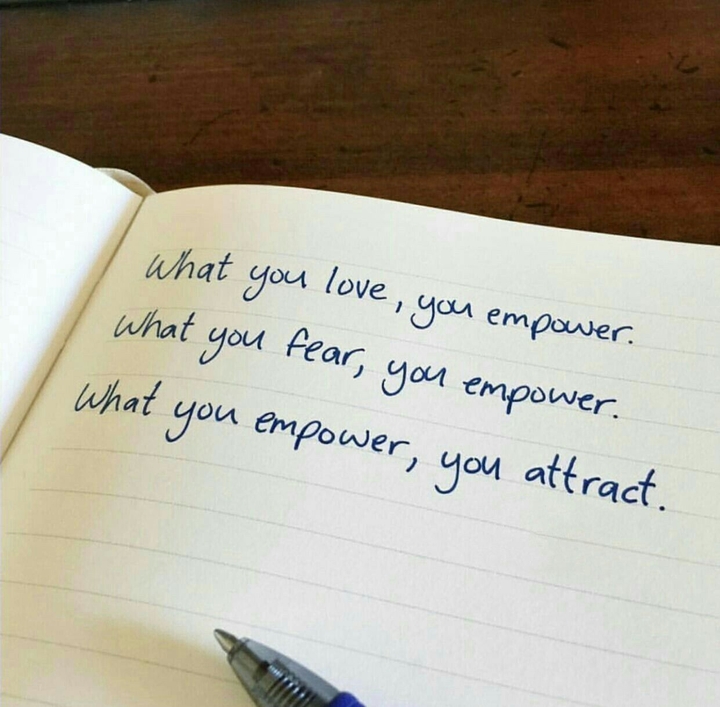 What you love, you empower.
What you fear, you empower.
What you empower, you attract.